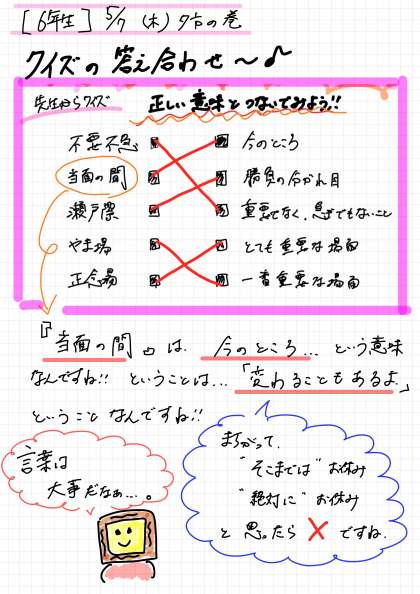 ［6年生］5/7（木）夕方の巻
クイズの答え合わせ～♪
先生からクイズ
正しい意味とつないでみよう!!
不要不急
今のところ
当面の間
勝負の分かれ目
瀬戸際
重要でなく、急ぎでもないこと
やま場
とても重要な場面
正念場
一番重要な場面
『当面の間』は、今のところ…という意味
なんですね!! ということは…「変わることもあるよ」
ということなんですね!!
言葉は
大事だなぁ…。
まちがって、
"そこまでは"お休み
"絶対に"お休み
と思ったら×ですね